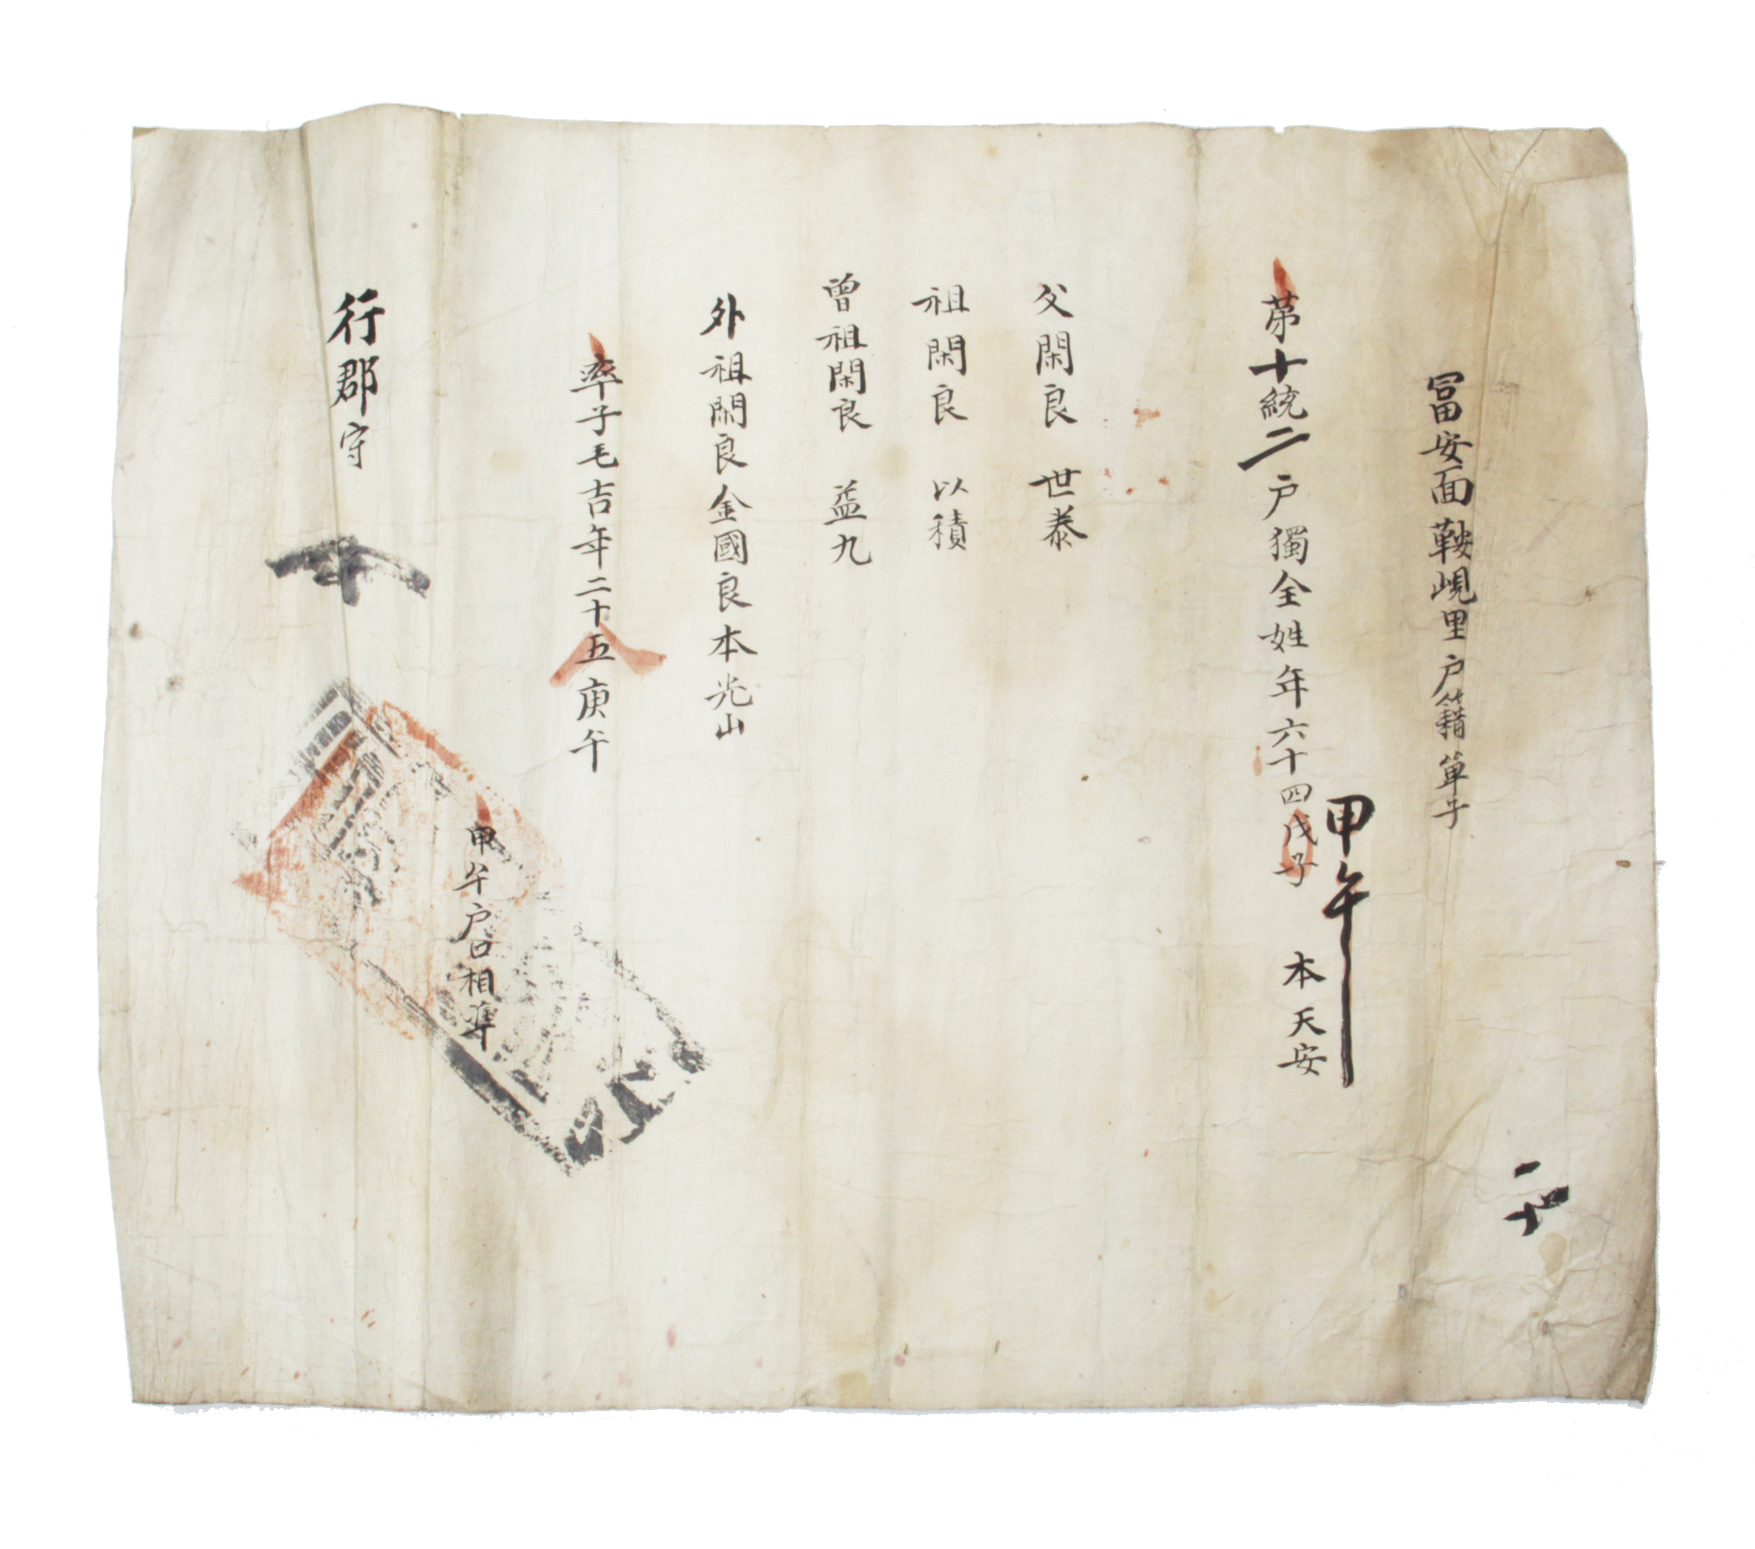 冨安面鞍峴里户籍單子
甲午
苐十統二户獨全姓年六十四戊子 本天安
父閑良 世泰
祖閑良 以積
曾祖閑良 益九
外祖閑良金國良本光山
率子毛吉年二十五庚午
甲午户口相凖
行郡守